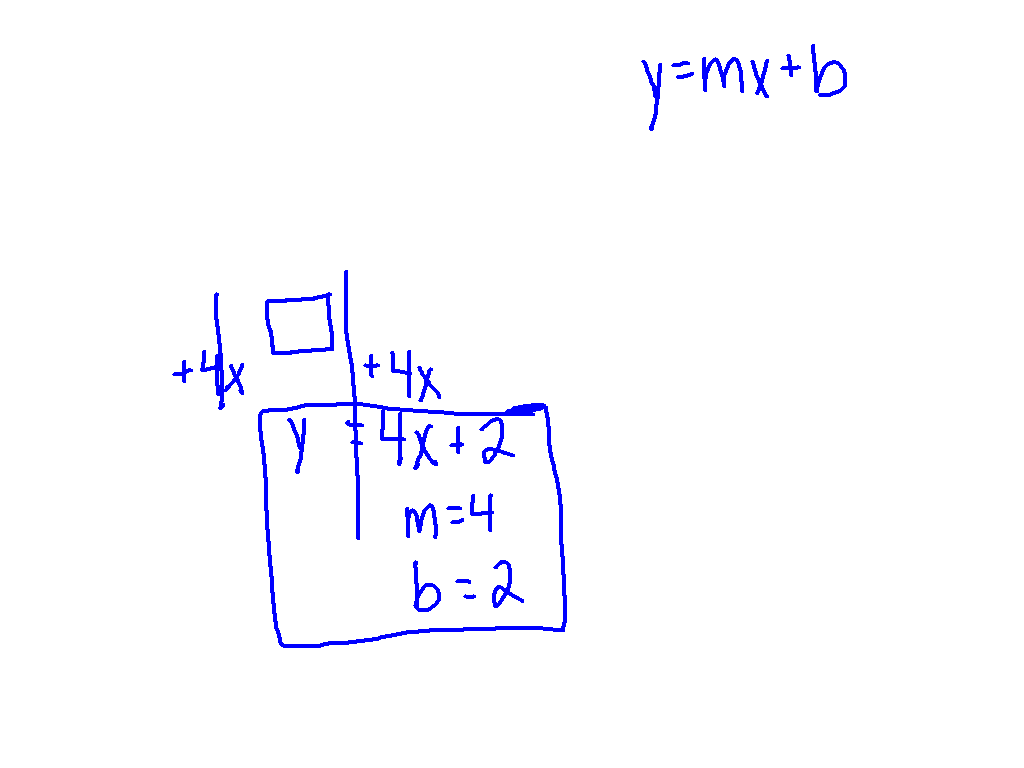 y=mx+b
+4x +4x
y = 4x+2
m=4
b=2